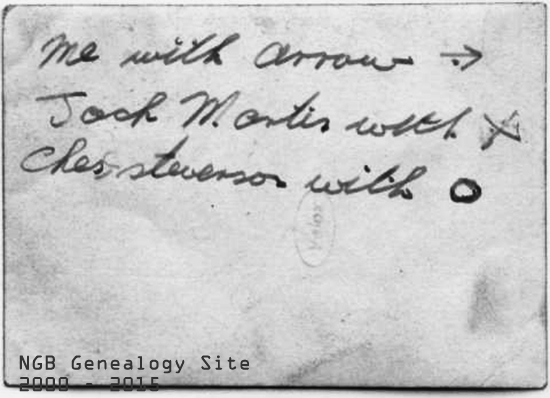 Me with arrow →
Jack Martin with X
Ches stevenson with O
Velox
NGB Genealogy Site
2000 - 2015